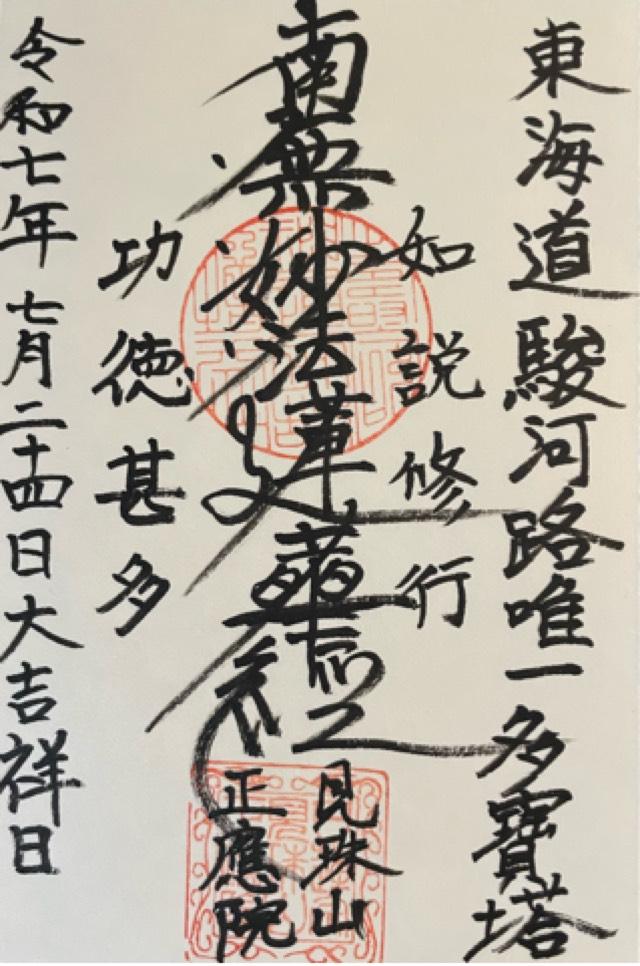 東海道駿河路唯一多寶塔
如説修行
南無妙法蓮華經
功徳甚多
珠山
正應院
令和七年七月二十四日大吉祥日